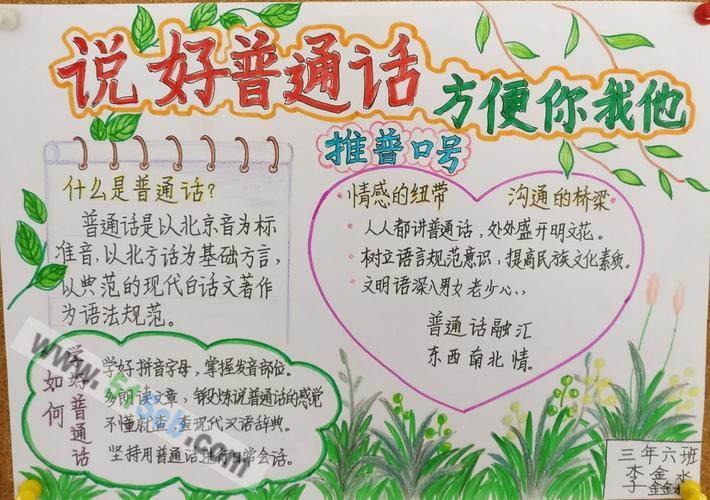 说好普通话
方便你我他
推普口号
什么是普通话?
普通话是以北京音为标
准音,以北方话为基础方言,
以典范的现代白话文著作
为语法规范。
情感的纽带 沟通的桥梁
人人都讲普通话,处处盛开明文花。
树立语言规范意识,提高民族文化素质。
文明语深入男女老少心、,
普通话融汇
东西南北情。
如何
学好普通话
学好拼音字母,掌握发音部位。
多朗读文章,锻炼说普通话的感觉
不懂就查,查现代汉语辞典。
坚持用普通话进行日常会话。
三年六班
李金水